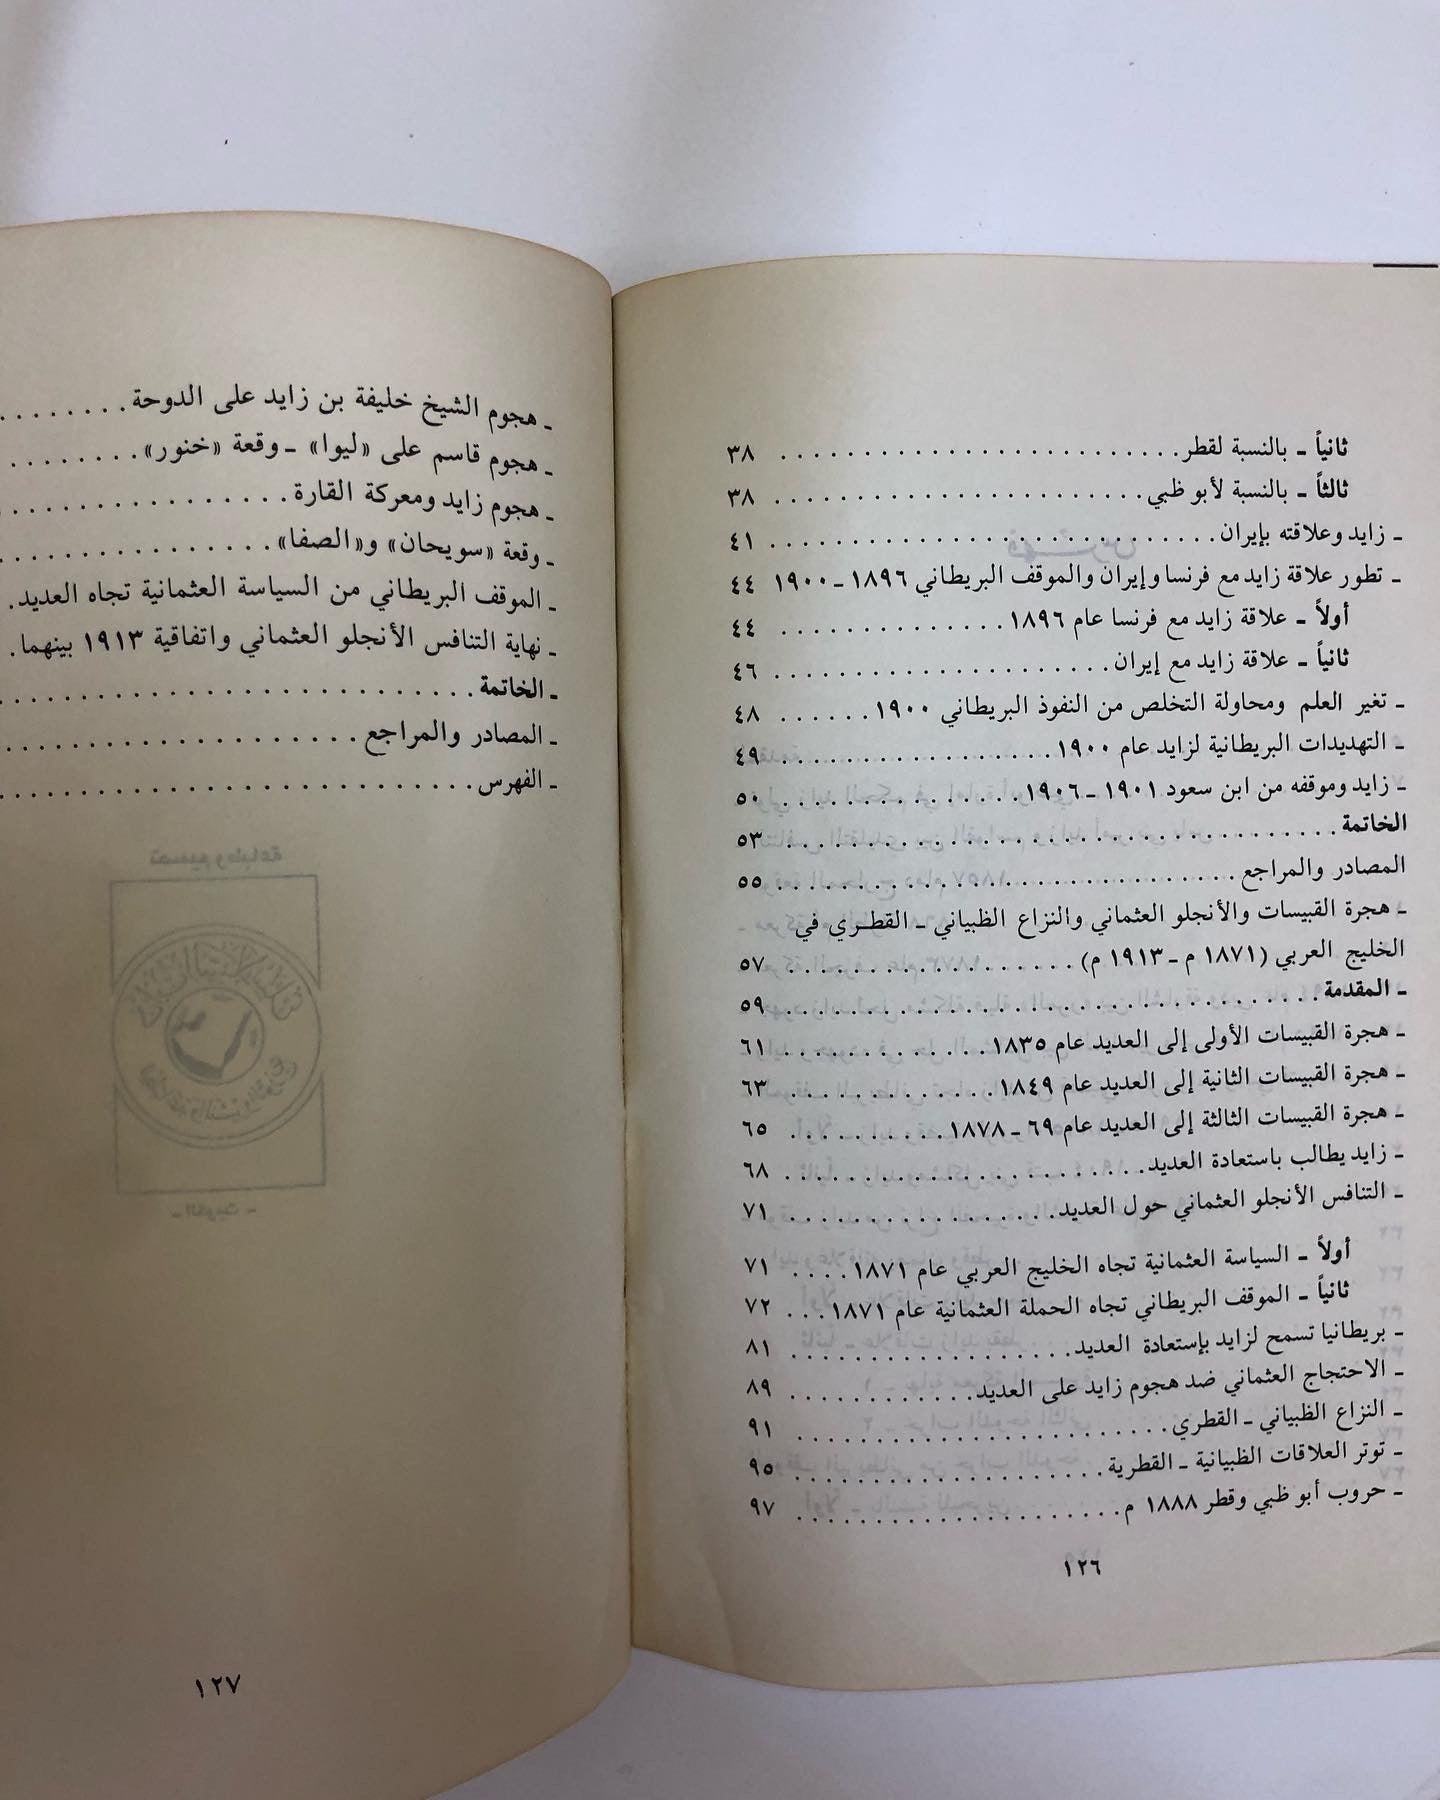 ثانياً ـ بالنسبة لقطر . . . . . . . . . . . . . . . . . . . . . . . . . ٣٨
ثالثاً ـ بالنسبة لأبو ظبي . . . . . . . . . . . . . . . . . . . . . . . ٣٨
ـ زايد وعلاقته بإيران . . . . . . . . . . . . . . . . . . . . . . . . . . . ٤١
ـ تطور علاقة زايد مع فرنسا وإيران والموقف البريطاني ١٨٩٦ ـ ١٩٠٠ ٤٤
أولاً ـ علاقة زايد مع فرنسا عام ١٨٩٦ . . . . . . . . . . . . . . ٤٤
ثانياً ـ علاقة زايد مع إيران . . . . . . . . . . . . . . . . . . . . . ٤٦
ـ تغير العلم ومحاولة التخلص من النفوذ البريطاني ١٩٠٠ . . . . . . ٤٨
ـ التهديدات البريطانية لزايد عام ١٩٠٠ . . . . . . . . . . . . . . . . . ٤٩
ـ زايد وموقفه من ابن سعود ١٩٠١ ـ ١٩٠٦ . . . . . . . . . . . . . . . ٥٠
الخاتمة . . . . . . . . . . . . . . . . . . . . . . . . . . . . . . . . . . ٥٣
المصادر والمراجع . . . . . . . . . . . . . . . . . . . . . . . . . . . . ٥٥
ـ هجرة القبيسات والأنجلو العثماني والنزاع الظبياني ـ القطري في
الخليج العربي (١٨٧١ م ـ ١٩١٣ م) . . . . . . . . . . . . . . . . . . ٥٧
ـ المقدمة . . . . . . . . . . . . . . . . . . . . . . . . . . . . . . . . . ٥٩
ـ هجرة القبيسات الأولى إلى العديد عام ١٨٣٥ . . . . . . . . . . . . . ٦١
ـ هجرة القبيسات الثانية إلى العديد عام ١٨٤٩ . . . . . . . . . . . . ٦٣
ـ هجرة القبيسات الثالثة إلى العديد عام ٦٩ ـ ١٨٧٨ . . . . . . . . . . ٦٥
ـ زايد يطالب باستعادة العديد . . . . . . . . . . . . . . . . . . . . . . ٦٨
ـ التنافس الأنجلو العثماني حول العديد . . . . . . . . . . . . . . . . . ٧١
أولاً ـ السياسة العثمانية تجاه الخليج العربي عام ١٨٧١ . . . . ٧١
ثانياً ـ الموقف البريطاني تجاه الحملة العثمانية عام ١٨٧١ . . . ٧٢
ـ بريطانيا تسمح لزايد بإستعادة العديد . . . . . . . . . . . . . . . . . . ٨١
ـ الاحتجاج العثماني ضد هجوم زايد على العديد . . . . . . . . . . . . ٨٩
ـ النزاع الظبياني ـ القطري . . . . . . . . . . . . . . . . . . . . . . . . ٩١
ـ توتر العلاقات الظبيانية ـ القطرية . . . . . . . . . . . . . . . . . . . . ٩٥
ـ حروب أبو ظبي وقطر ١٨٨٨ م . . . . . . . . . . . . . . . . . . . . . ٩٧
١٢٦
ـ هجوم الشيخ خليفة بن زايد على الدوحة . . . . . . . .
ـ هجوم قاسم على «ليوا» ـ وقعة «خنور» . . . . . . . .
ـ هجوم زايد ومعركة القارة . . . . . . . . . . . . . . . .
ـ وقعة «سويحان» و«الصفا» . . . . . . . . . . . . . . . .
ـ الموقف البريطاني من السياسة العثمانية تجاه العديد .
ـ نهاية التنافس الأنجلو العثماني واتفاقية ١٩١٣ بينهما .
ـ الخاتمة . . . . . . . . . . . . . . . . . . . . . . . . . . .
ـ المصادر والمراجع . . . . . . . . . . . . . . . . . . . . .
ـ الفهرس . . . . . . . . . . . . . . . . . . . . . . . . . . .
١٢٧